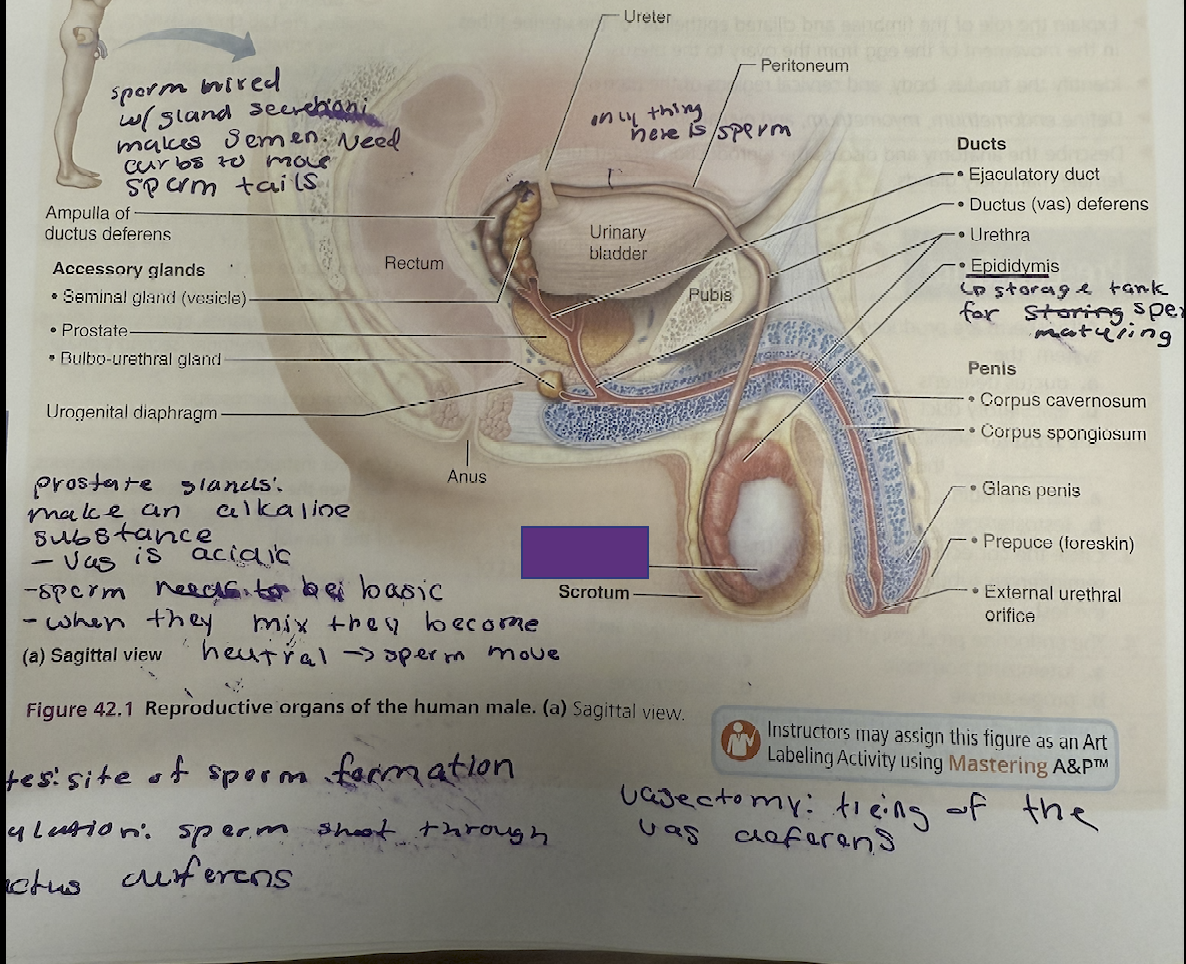 Ureter
Peritoneum
sperm mixed
w/ gland
makes semen. Need
carbs to move
sperm tails
only thing
here is sperm
Ducts
• Ejaculatory duct
• Ductus (vas) deferens
• Urethra
• Epididymis
↳ storage tank
for storing
maturing
Ampulla of
ductus deferens
Accessory glands
• Seminal gland (vesicle)
• Prostate
• Bulbo-urethral gland
Urogenital diaphragm
Rectum
Urinary
bladder
Pubis
Anus
Penis
• Corpus cavernosum
• Corpus spongiosum
• Glans penis
• Prepuce (foreskin)
• External urethral
orifice
Scrotum
prostate glands:
make an alkaline
substance
- vas is acidic
- sperm needs to be basic
- when they mix they become
neutral → sperm move
(a) Sagittal view
Figure 42.1 Reproductive organs of the human male. (a) Sagittal view.
Instructors may assign this figure as an Art
Labeling Activity using Mastering A&P™
site of sperm formation
sperm shoot through
deferens
vasectomy: of the
vas deferens